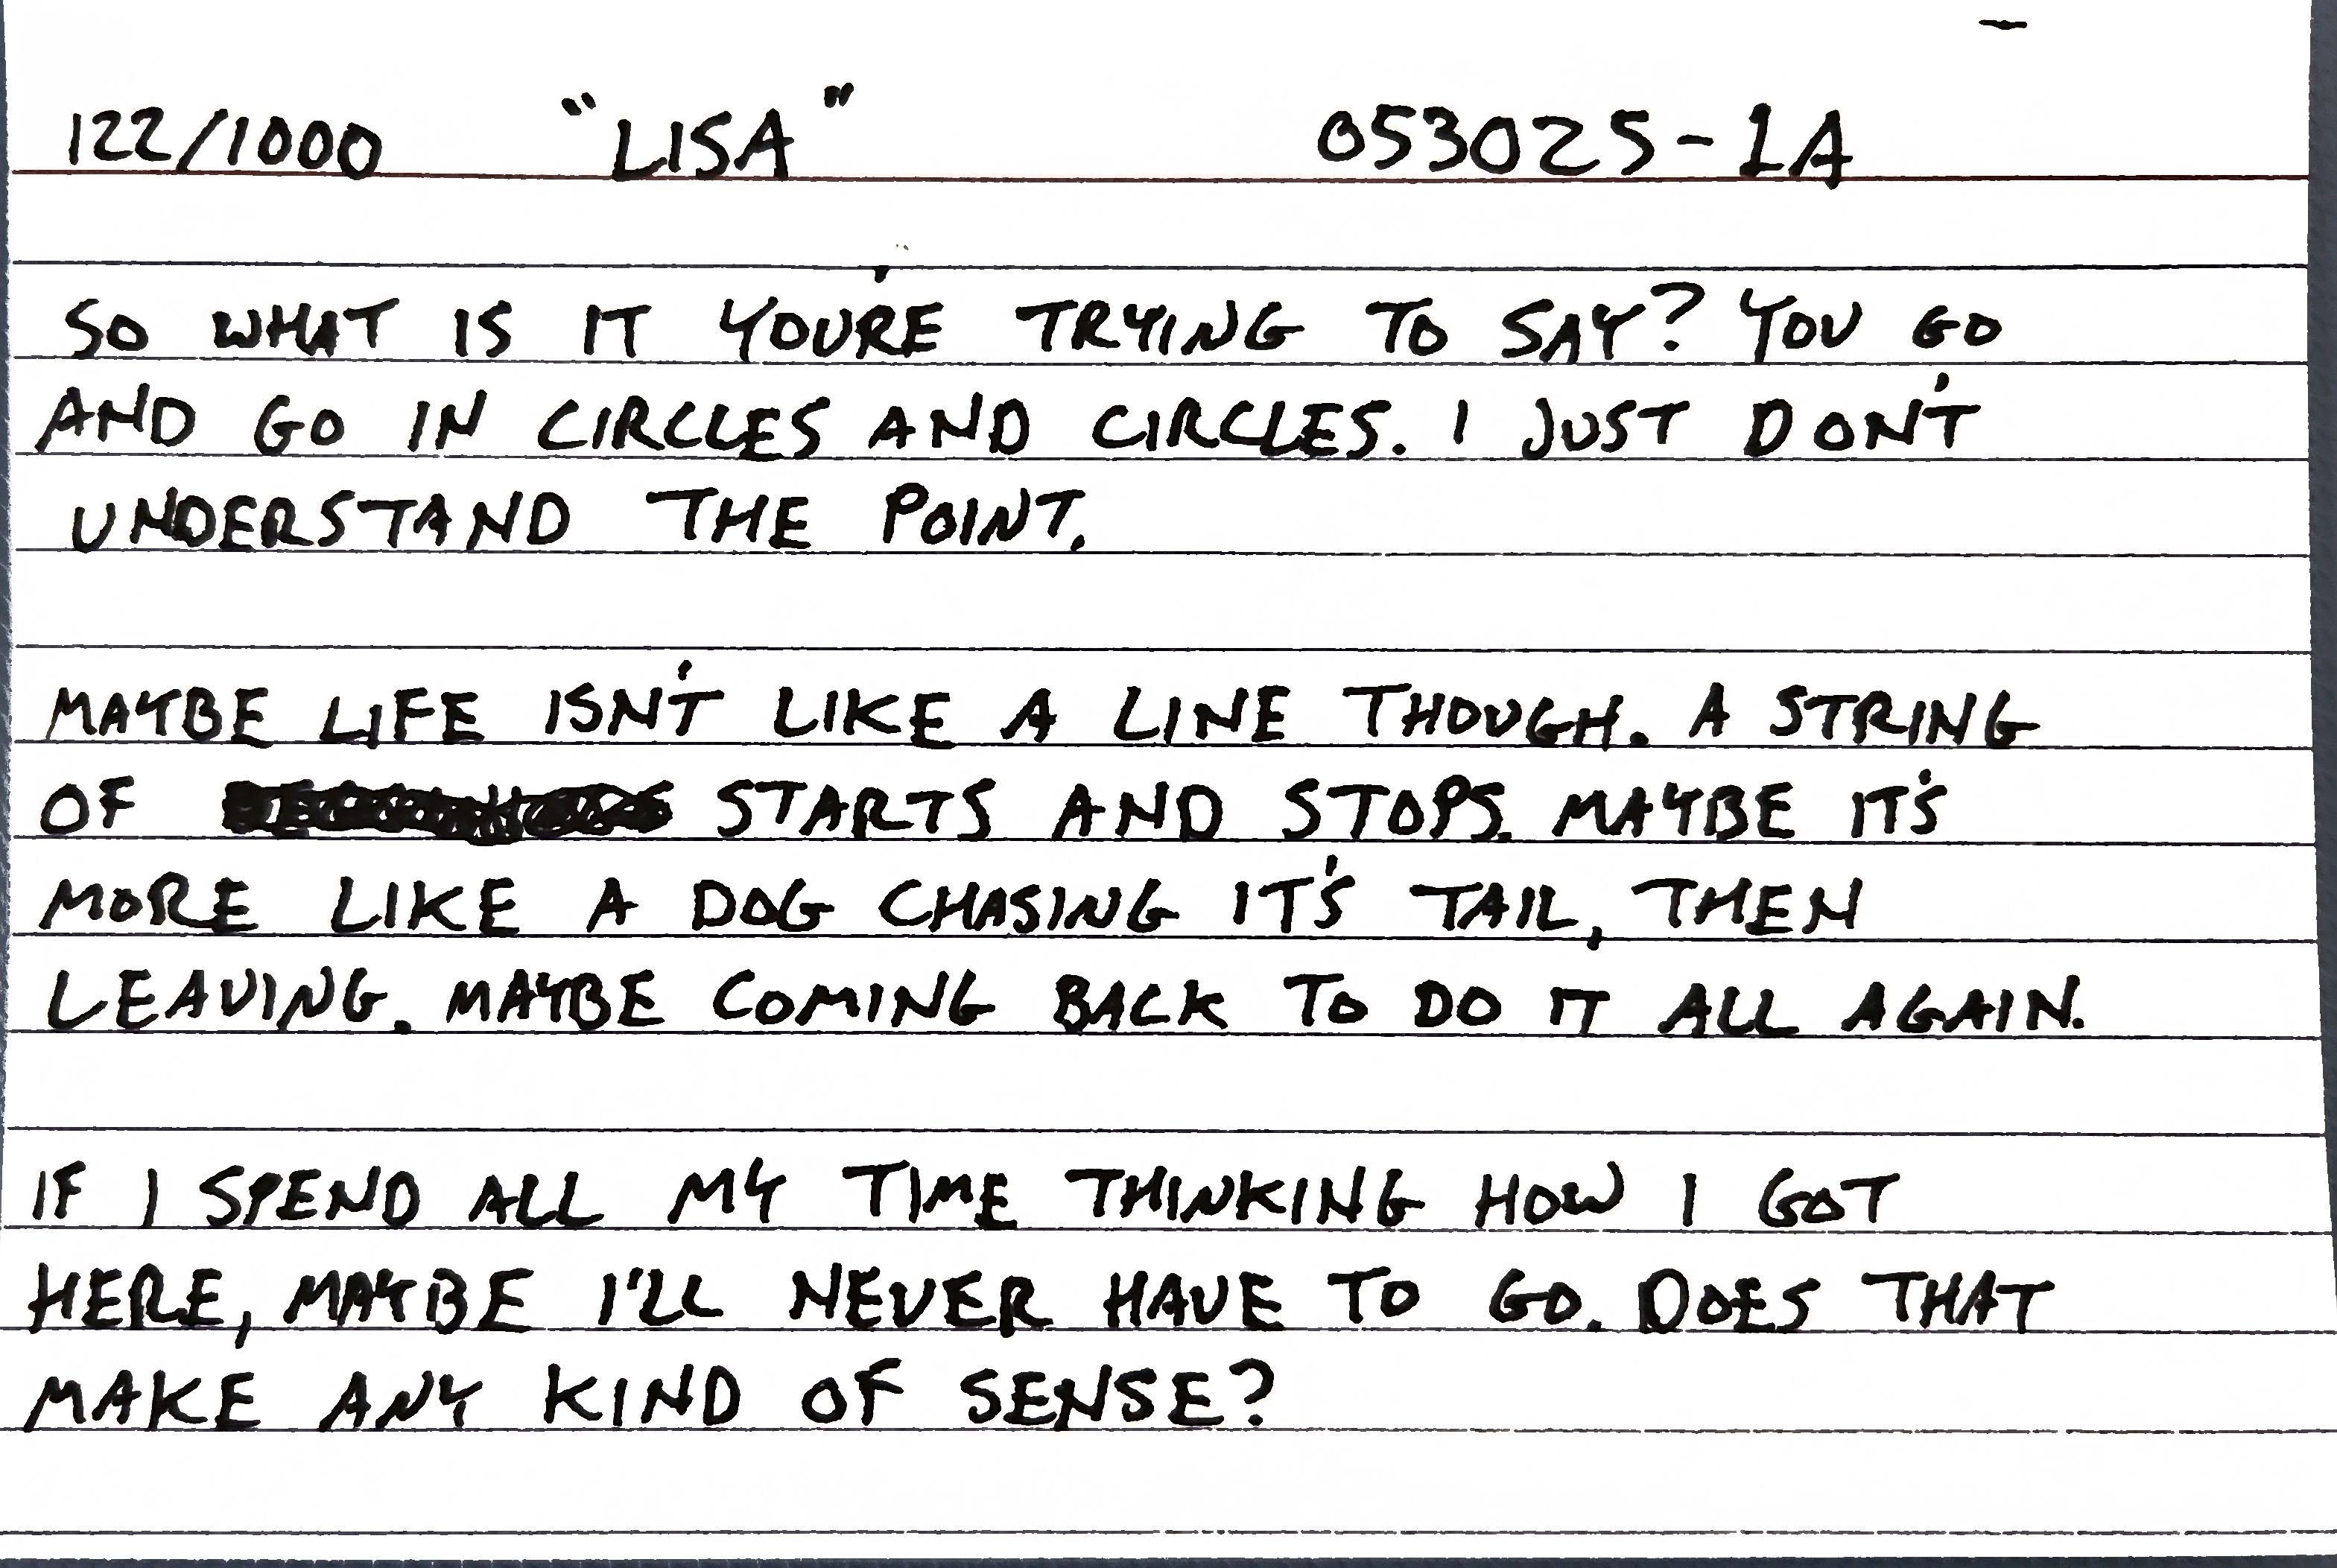 122/1000 "LISA" 053025-1A
SO WHAT IS IT YOU'RE TRYING TO SAY? YOU GO
AND GO IN CIRCLES AND CIRCLES. I JUST DON'T
UNDERSTAND THE POINT.
MAYBE LIFE ISN'T LIKE A LINE THOUGH. A STRING
OF STARTS AND STOPS. MAYBE IT'S
MORE LIKE A DOG CHASING IT'S TAIL, THEN
LEAVING. MAYBE COMING BACK TO DO IT ALL AGAIN.
IF I SPEND ALL MY TIME THINKING HOW I GOT
HERE, MAYBE I'LL NEVER HAVE TO GO. DOES THAT
MAKE ANY KIND OF SENSE?